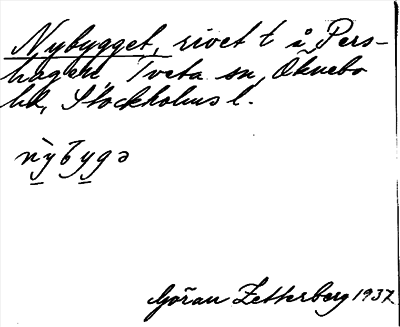 Nybygget, rivet t å Pers-
hagen, Tveta sn, Öknebo
hd, Stockholms l.
nybygə
Göran Zetterberg 1937